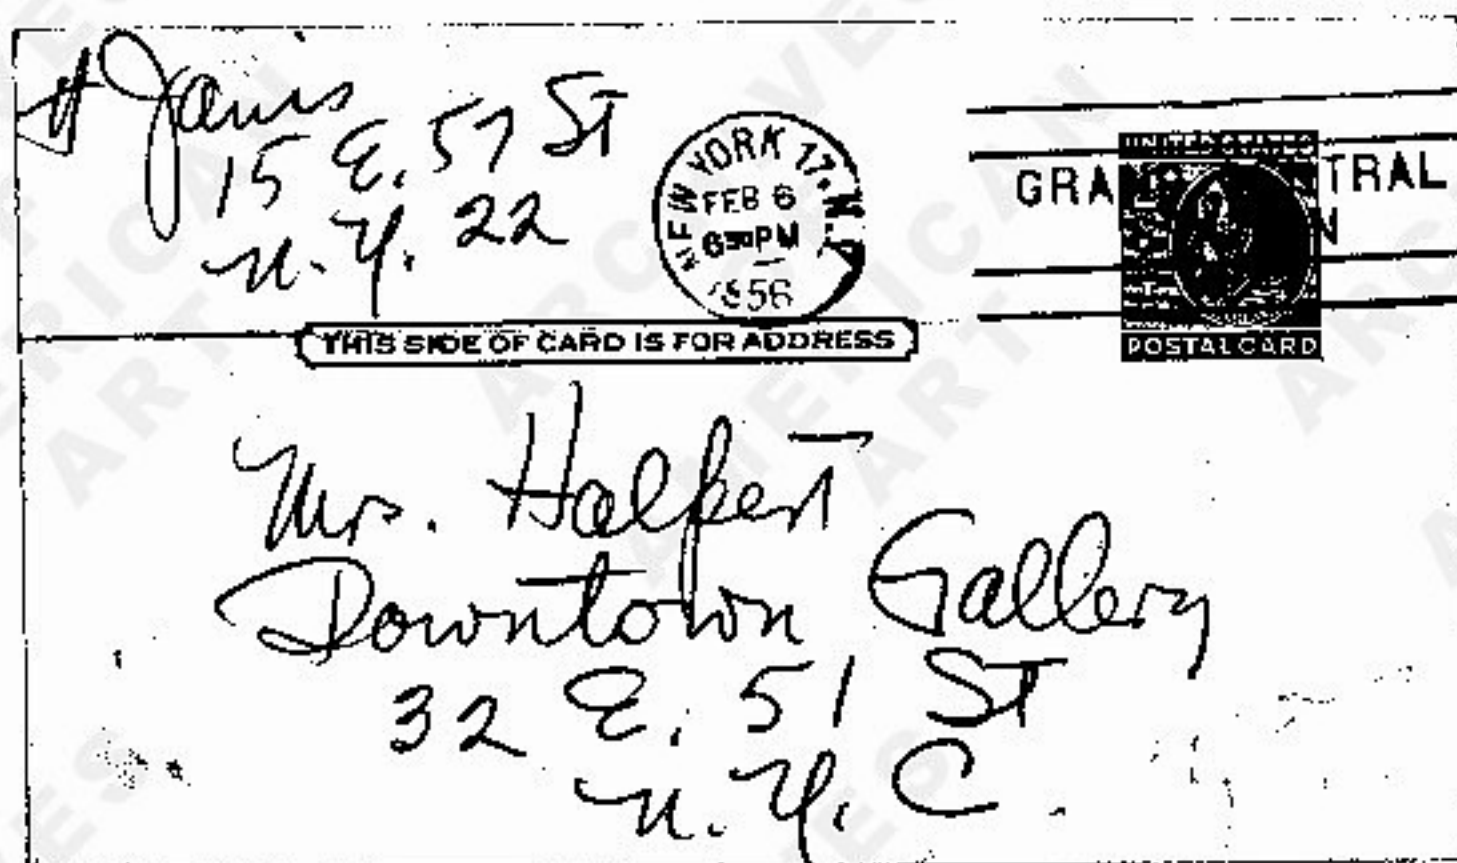 H Janis
15 E. 57 St
N.Y. 22
NEW YORK 17. N.Y.
FEB 6
6 30 PM
1956
GRAND CENTRAL
UNITED STATES
POSTAL CARD
THIS SIDE OF CARD IS FOR ADDRESS
Mrs. Halpert
Downtown Gallery
32 E. 51 St
N.Y.C.